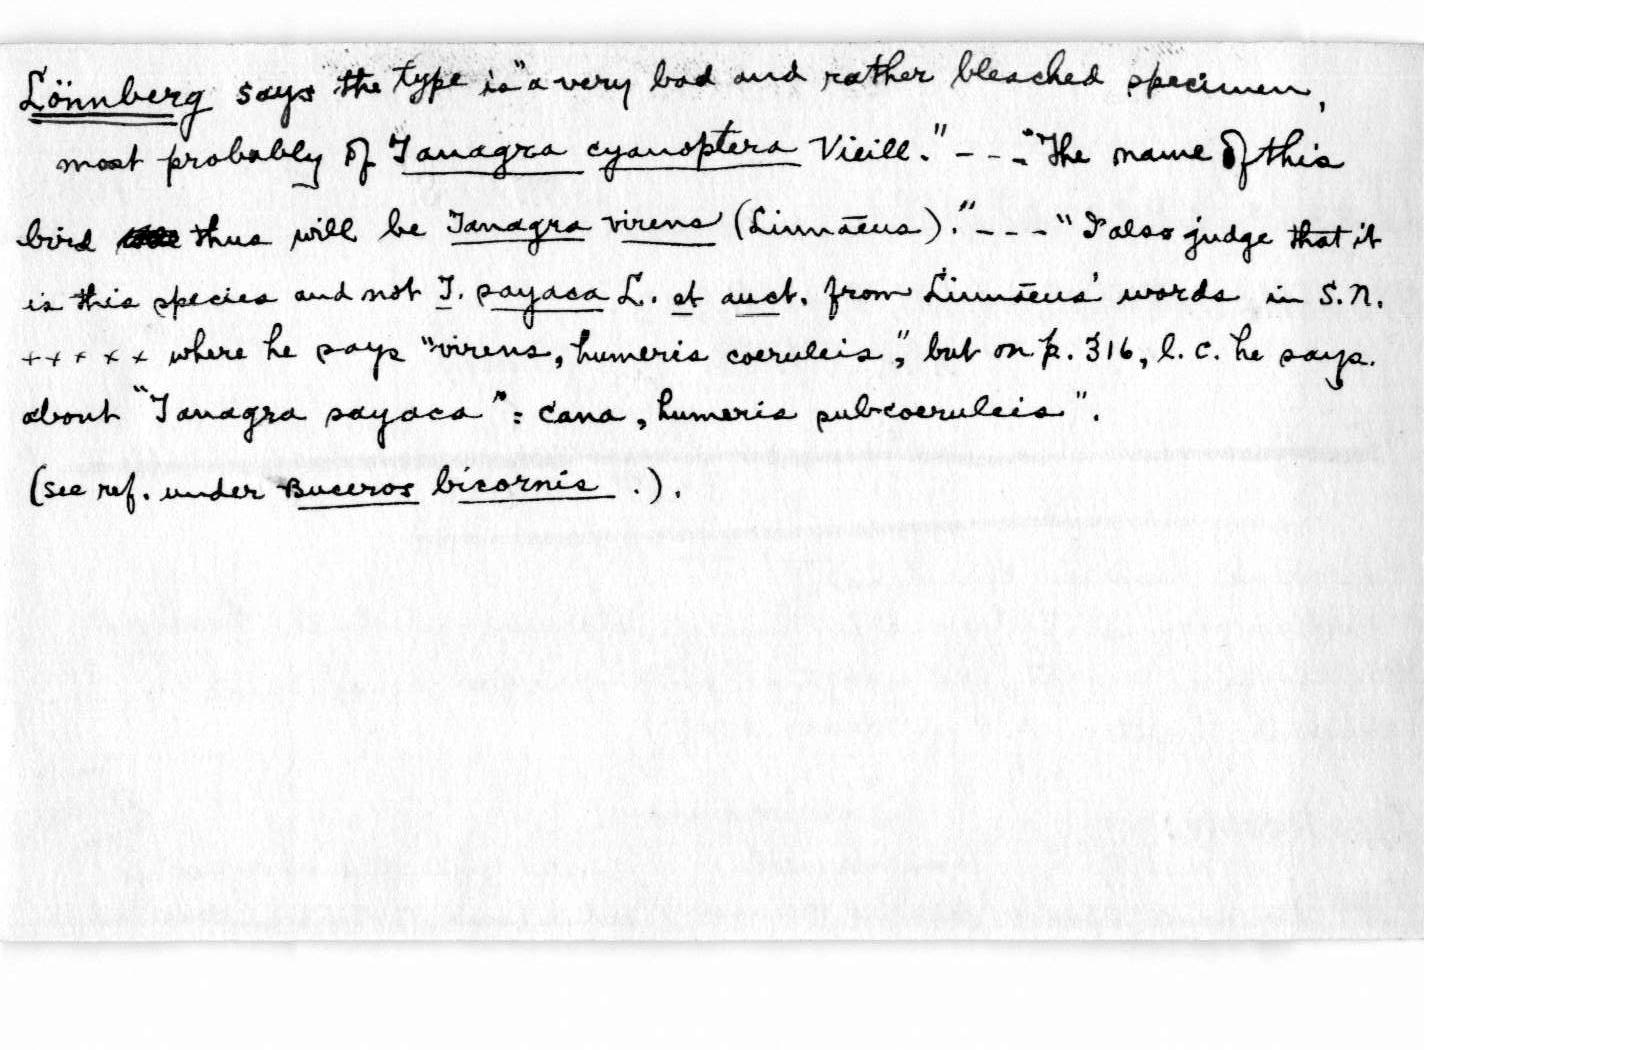 Lönnberg says the type is "a very bad and rather bleached specimen,
most probably of Tanagra cyanoptera Vieill." - - - "The name of this
bird thus will be Tanagra virens (Linnæus)." - - - "I also judge that it
is this species and not T. sayaca L. et auct. from Linnæus' words in S.N.
+ + + x x where he says "virens, humeris coeruleis", but on p. 316, l.c. he says
about "Tanagra sayaca": cana, humeris subcoeruleis".
(see ref. under Buceros bicornis .).